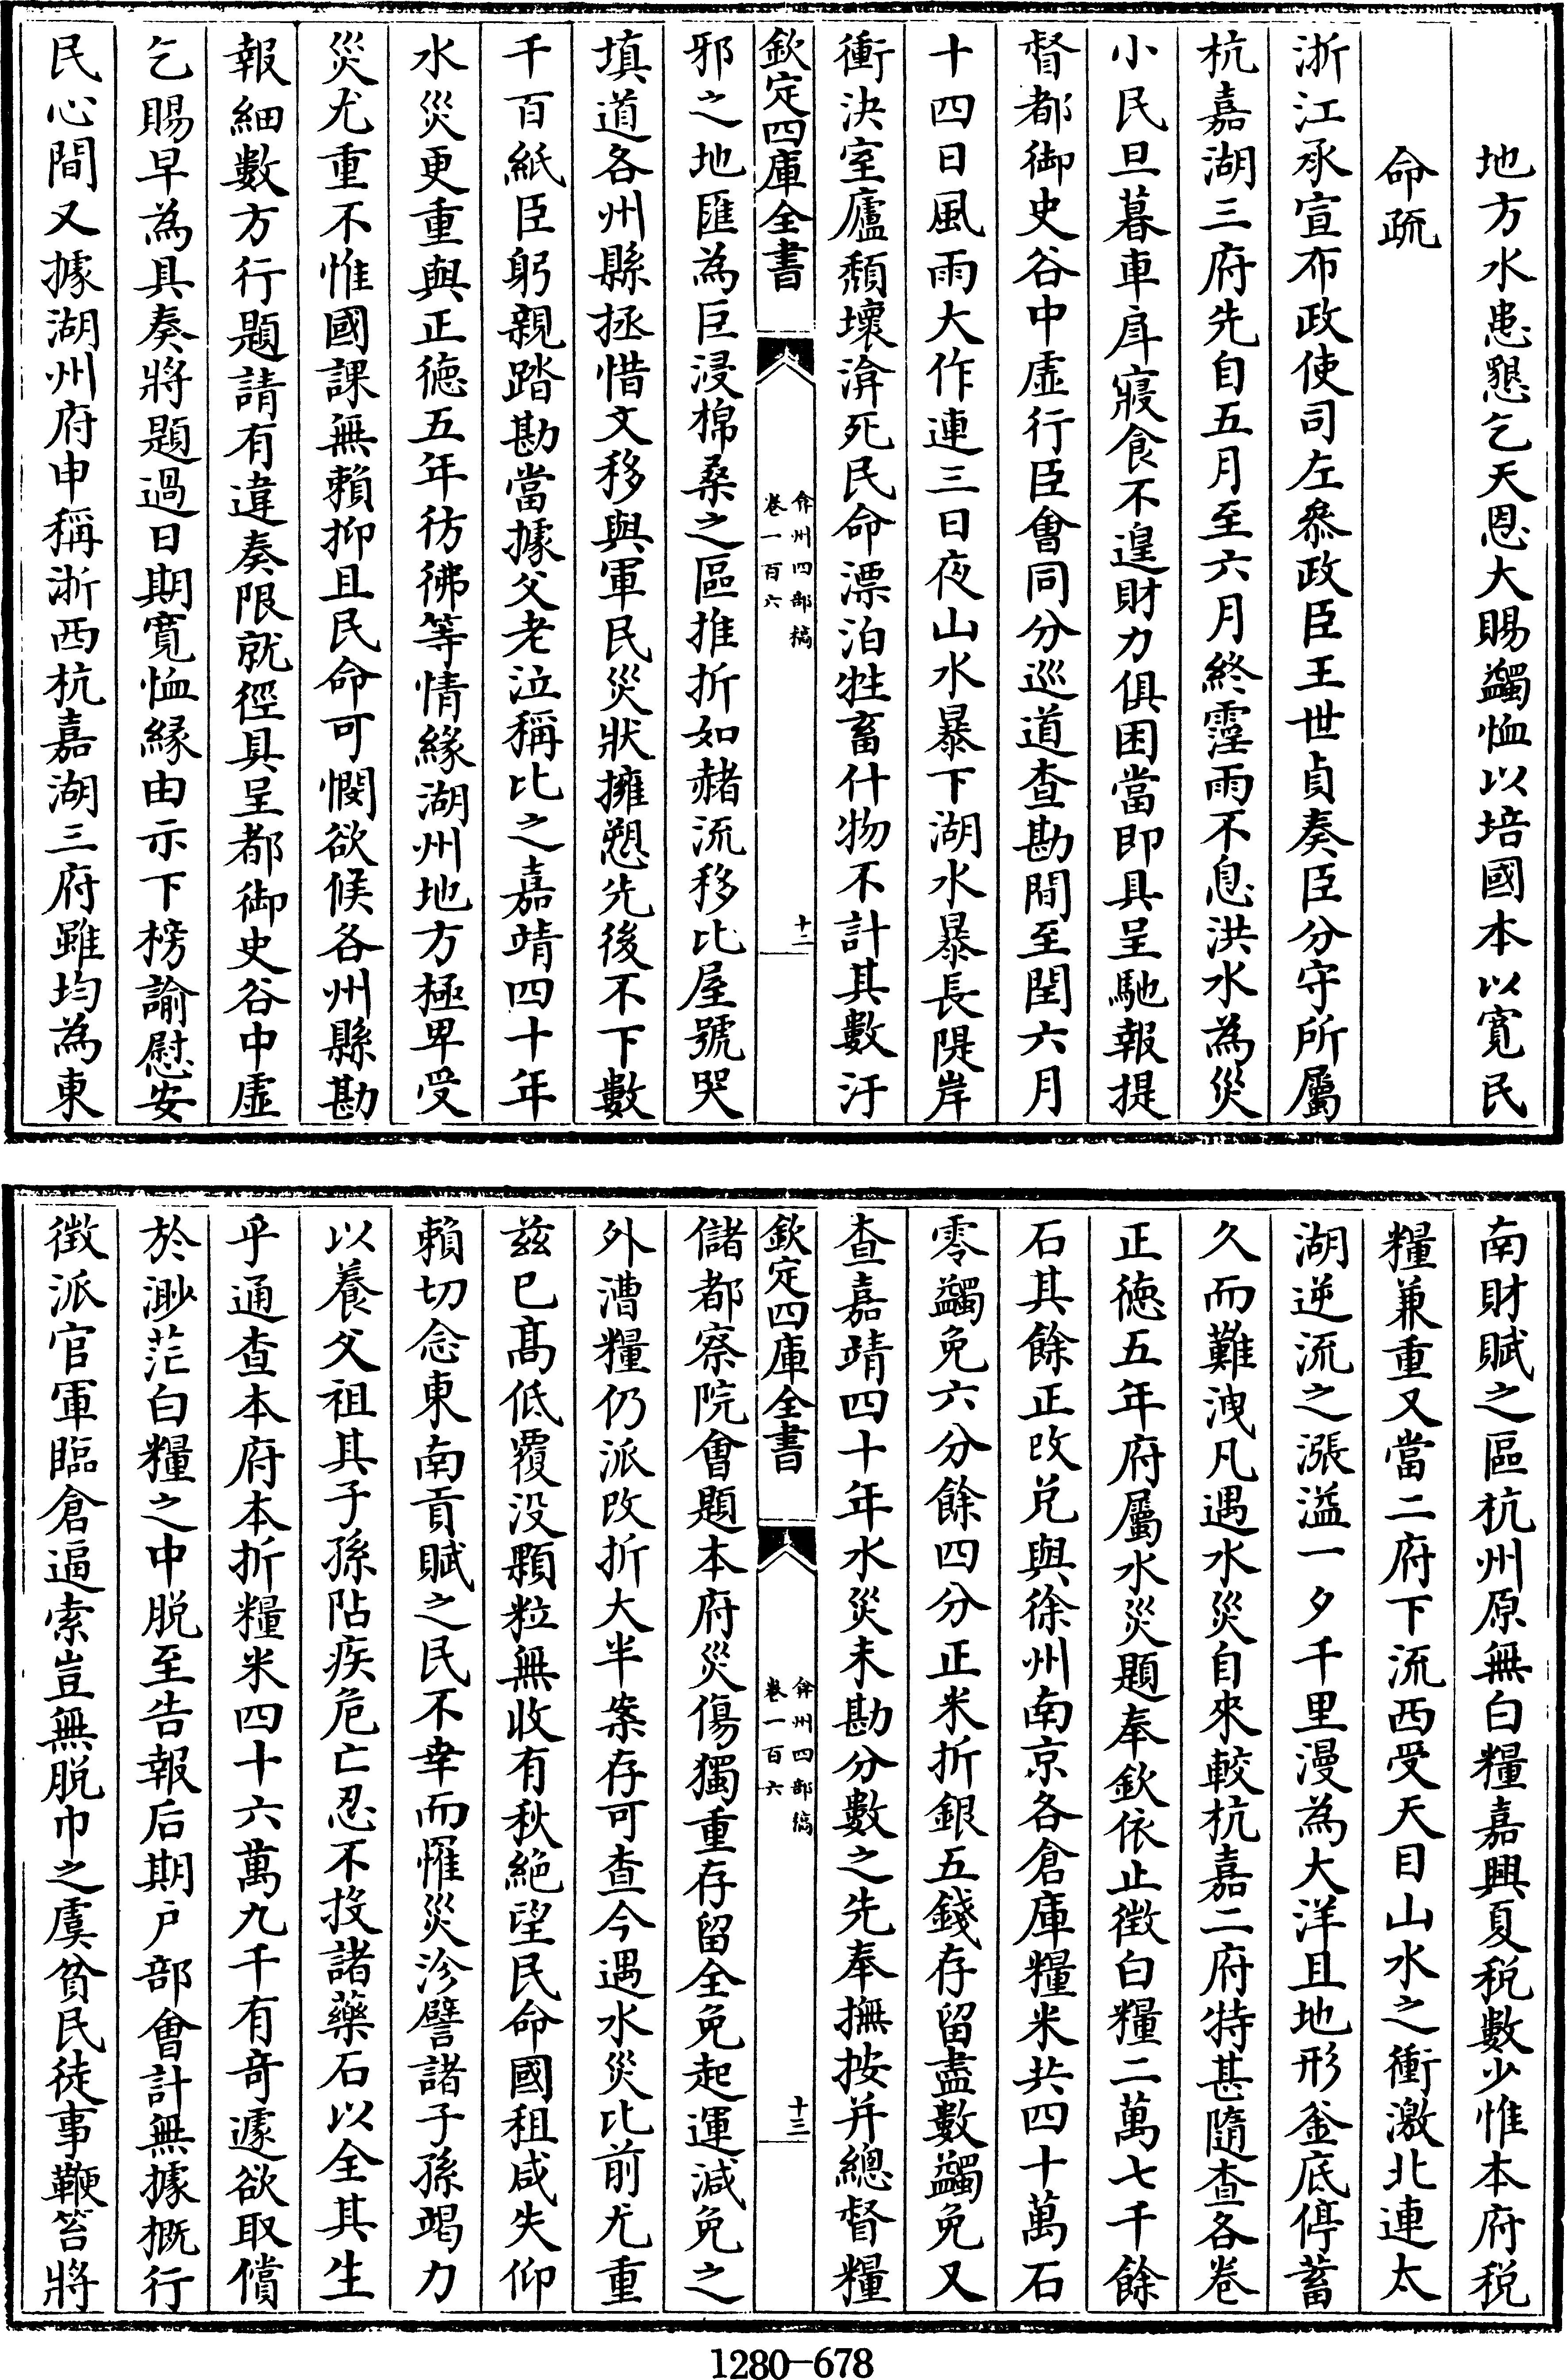 地方水患懇乞天恩大賜蠲恤以培國本以寛民
命疏
浙江承宣布政使司左叅政臣王世貞奏臣分守所屬
杭嘉湖三府先自五月至六月終霪雨不息洪水為災
小民旦暮車戽寢食不遑財力俱困當即具呈馳報提
督都御史谷中虛行臣會同分巡道查勘間至閏六月
十四日風雨大作連三日夜山水暴下湖水暴長隄岸
衝決室廬頽壞渰死民命漂泊牲畜什物不計其數汙
欽定四庫全書
弇州四部稿
卷一百六
十二
邪之地匯為巨浸棉桑之區摧折如赭流移比屋號哭
填道各州縣拯恤文移與軍民災狀擁愬先後不下數
千百紙臣躬親踏勘當據父老泣稱比之嘉靖四十年
水災更重與正德五年彷彿等情緣湖州地方極卑受
災尤重不惟國課無賴抑且民命可憫欲候各州縣勘
報細數方行題請有違奏限就徑具呈都御史谷中虛
乞賜早為具奏將題過日期寛恤緣由示下榜諭慰安
民心間又據湖州府申稱浙西杭嘉湖三府雖均為東
南財賦之區杭州原無白糧嘉興夏稅數少惟本府稅
糧兼重又當二府下流西受天目山水之衝激北連太
湖逆流之漲溢一夕千里漫為大洋且地形釜底停蓄
久而難洩凡遇水災自來較杭嘉二府特甚隨查各卷
正德五年府屬水災題奉欽依止徵白糧二萬七千餘
石其餘正改兌與徐州南京各倉庫糧米共四十萬石
零蠲免六分餘四分正米折銀五錢存留盡數蠲免又
查嘉靖四十年水災未勘分數之先奉撫按并總督糧
欽定四庫全書
弇州四部稿
卷一百六
十三
儲都察院會題本府災傷獨重存留全免起運減免之
外漕糧仍派改折大半案存可查今遇水災比前尤重
兹已高低覆没顆粒無收有秋絕望民命國租咸失仰
賴切念東南貢賦之民不幸而罹災沴譬諸子孫竭力
以養父祖其子孫阽疾危亡忍不投諸藥石以全其生
乎通查本府本折糧米四十六萬九千有奇遽欲取償
於渺茫白糧之中脱至告報后期户部會計無據概行
徵派官軍臨倉逼索豈無脱巾之虞貧民徒事鞭笞將
1280-678